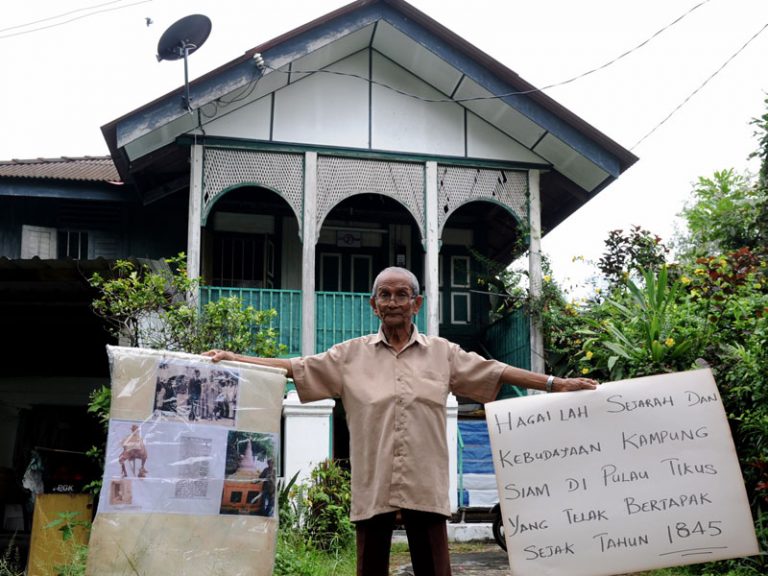 HAGAI LAH SEJARAH DAN
KEBUDAJAAN KAMPUNG
SIAM DI PULAU TIKUS
YANG TELAK BERTAPAK
SEJAK TAHUN 1845